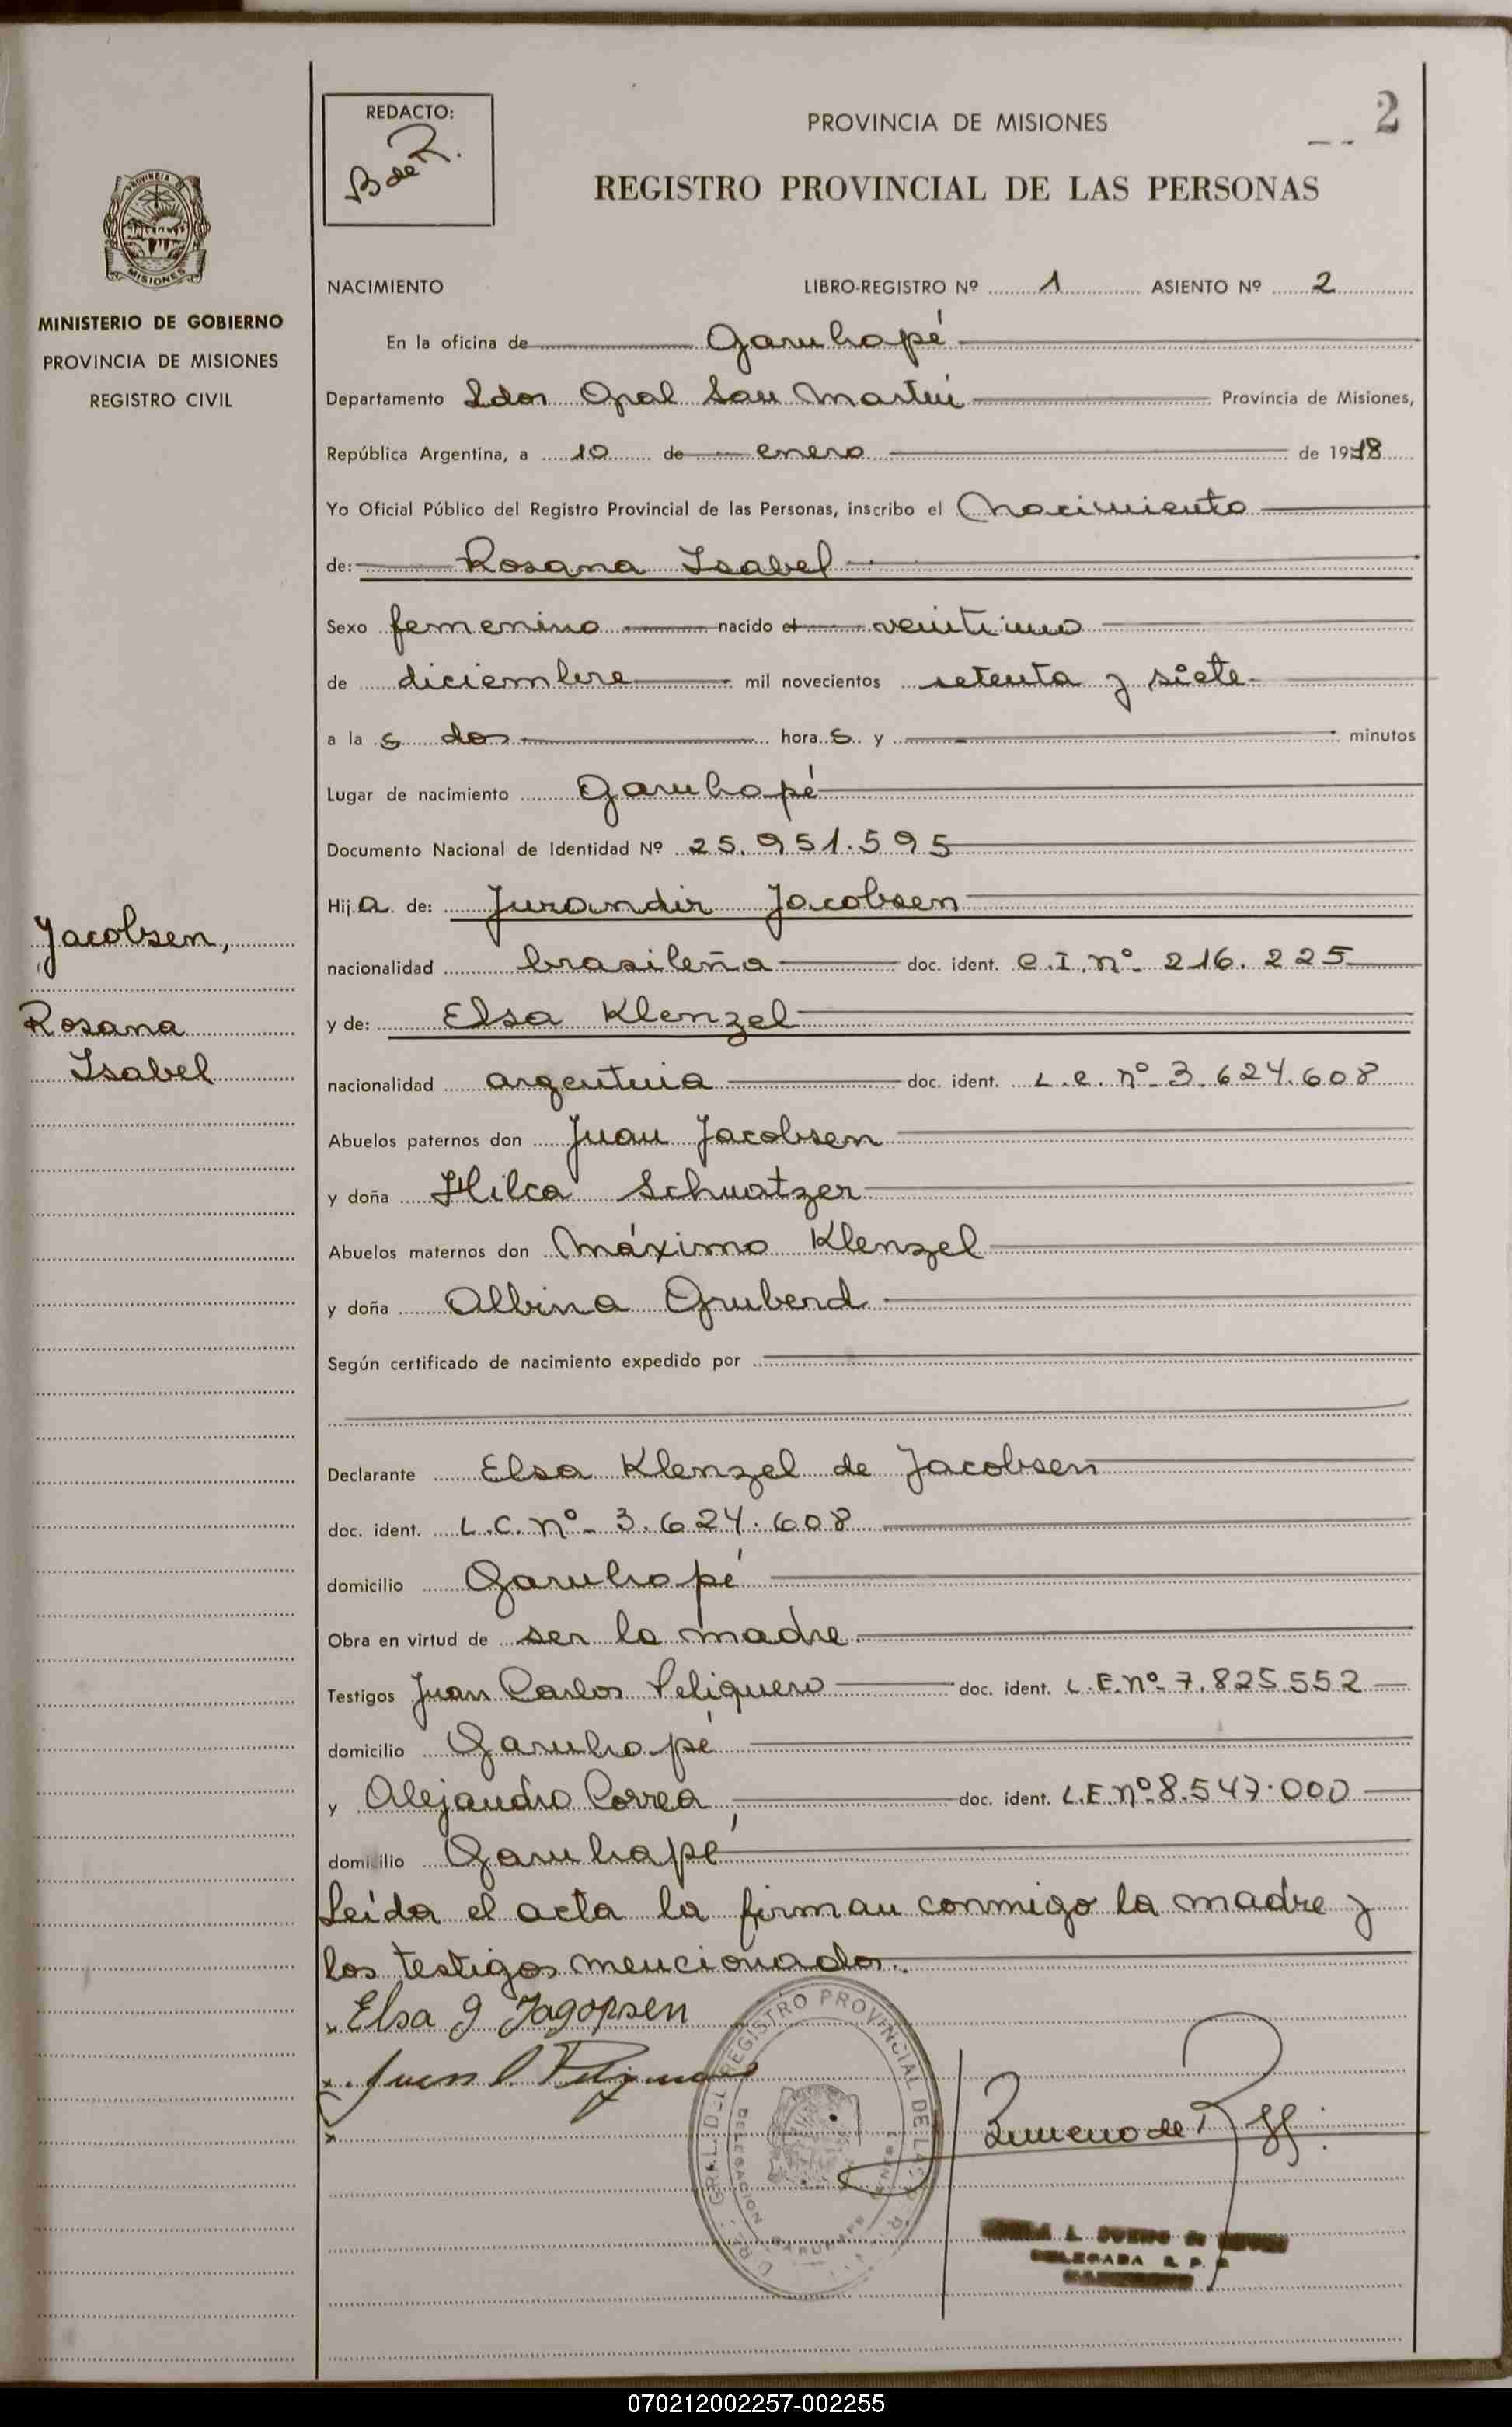 REDACTO:
B de R.
PROVINCIA DE MISIONES
2
REGISTRO PROVINCIAL DE LAS PERSONAS
PROVINCIA
MISIONES
MINISTERIO DE GOBIERNO
PROVINCIA DE MISIONES
REGISTRO CIVIL
NACIMIENTO LIBRO-REGISTRO Nº 1 ASIENTO Nº 2
En la oficina de Garuhapé
Departamento Ldor Gral San Martín Provincia de Misiones,
República Argentina, a 10 de enero de 1978
Yo Oficial Público del Registro Provincial de las Personas, inscribo el Nacimiento
de: Rosana Isabel
Sexo femenino nacido el veintiuno
de diciembre mil novecientos setenta y siete
a la s dos hora s y minutos
Lugar de nacimiento Garuhapé
Documento Nacional de Identidad Nº 25.951.595
Hij a de: Jurandir Jacobsen
nacionalidad brasileña doc. ident. C.I. nº 216.225
y de: Elsa Klenzel
nacionalidad argentina doc. ident. L.C. nº 3.624.608
Abuelos paternos don Juan Jacobsen
y doña Hilca Schwatzer
Abuelos maternos don Máximo Klenzel
y doña Albina Gruberd
Según certificado de nacimiento expedido por
Declarante Elsa Klenzel de Jacobsen
doc. ident. L.C. nº 3.624.608
domicilio Garuhapé
Obra en virtud de ser la madre.
Testigos Juan Carlos Peliquero doc. ident. L.E. nº 7.825.552
domicilio Garuhapé
y Alejandro Correa doc. ident. L.E. nº 8.547.000
domicilio Garuhapé
Leída el acta la firman conmigo la madre y
los testigos mencionados.
Elsa J Jagopsen
Juan C.
REGISTRO PROVINCIAL DE LAS
DELEGACION GARUHAPE
de R
DELEGADA R. P.
Jacobsen,
Rosana
Isabel
070212002257-002255